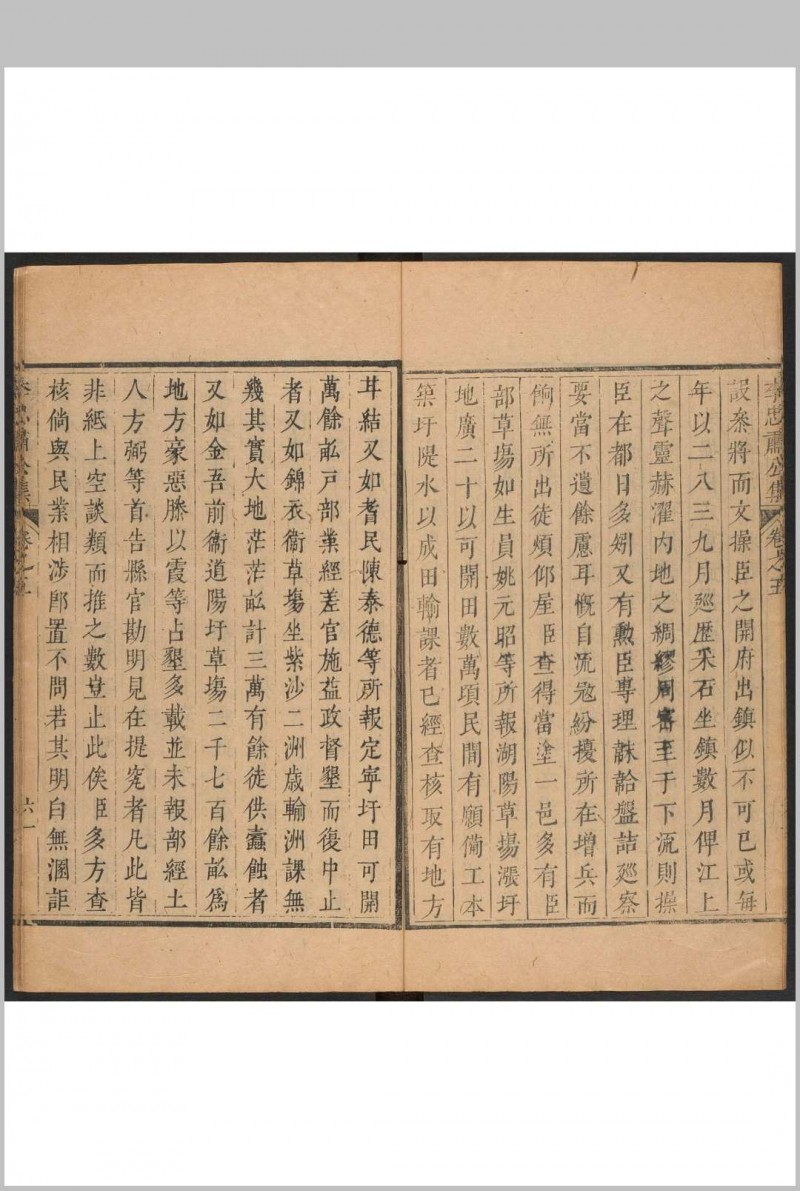 李忠肅公集 卷之五
設叅將而文操臣之開府出鎮似不可已或每
年以二八三九月廵歷采石坐鎮數月俾江上
之聲靈赫濯内地之綢繆周審至于下流則操
臣在都日多矧又有勲臣專理誅詥盤詰廵察
要當不遺餘慮耳慨自流冦紛擾所在增兵而
餉無所出徒煩仰屋臣查得當塗一邑多有臣
部草塲如生員姚元昭等所報湖陽草塲漲圩
地廣二十以可開田數萬項民間有願備工本
築圩隄水以成田輸課者已經查核取有地方
耳結又如耆民陳泰德等所報定寧圩田可開
萬餘畝戸部業經差官施益政督墾而復中止
者又如錦衣衞草塲坐紫沙二洲歳輸洲課無
幾其實大地茫茫畝計三萬有餘徒供蠧蝕者
又如金吾前衞道陽圩草塲二千七百餘畝爲
地方豪惡滕以霞等占墾多載並未報部經土
人方弼等首告縣官勘明見在提究者凢此皆
非紙上空談類而推之數豈止此俟臣多方查
核倘與民業相涉即置不問若其明白無溷詎
李忠肅公集 卷之五
六一